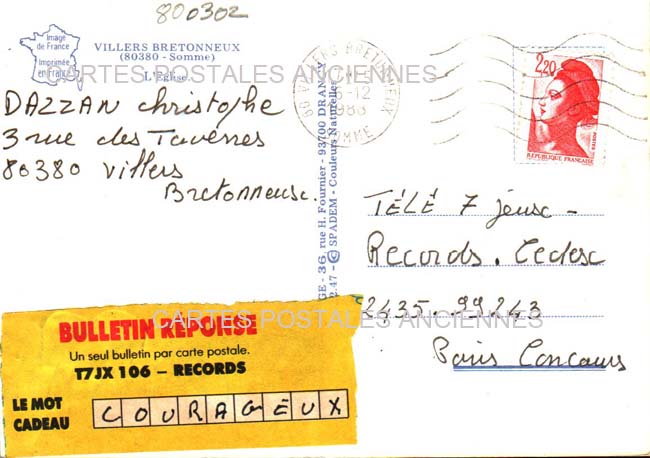 800302
Image
de France
Imprimée
en France
VILLERS BRETONNEUX
(80380 - Somme)
L'Église.
CARTES POSTALES ANCIENNES
DAZZAN christophe
3 rue des Tavernes
80380 Villers
Bretonneux.
80 VILLERS BRETONNEUX
6-12
1988
SOMME
36, rue H. Fournier - 93700 DRANCY
2.47 - © SPADEM - Couleurs Naturelles
2,20
REPUBLIQUE FRANÇAISE
TÉLÉ 7 jeux -
Records. Cedex
2435. 99243
Paris Concours
CARTES POSTALES ANCIENNES
BULLETIN RÉPONSE
Un seul bulletin par carte postale.
T7JX 106 – RECORDS
LE MOT
CADEAU
COURAGEUX